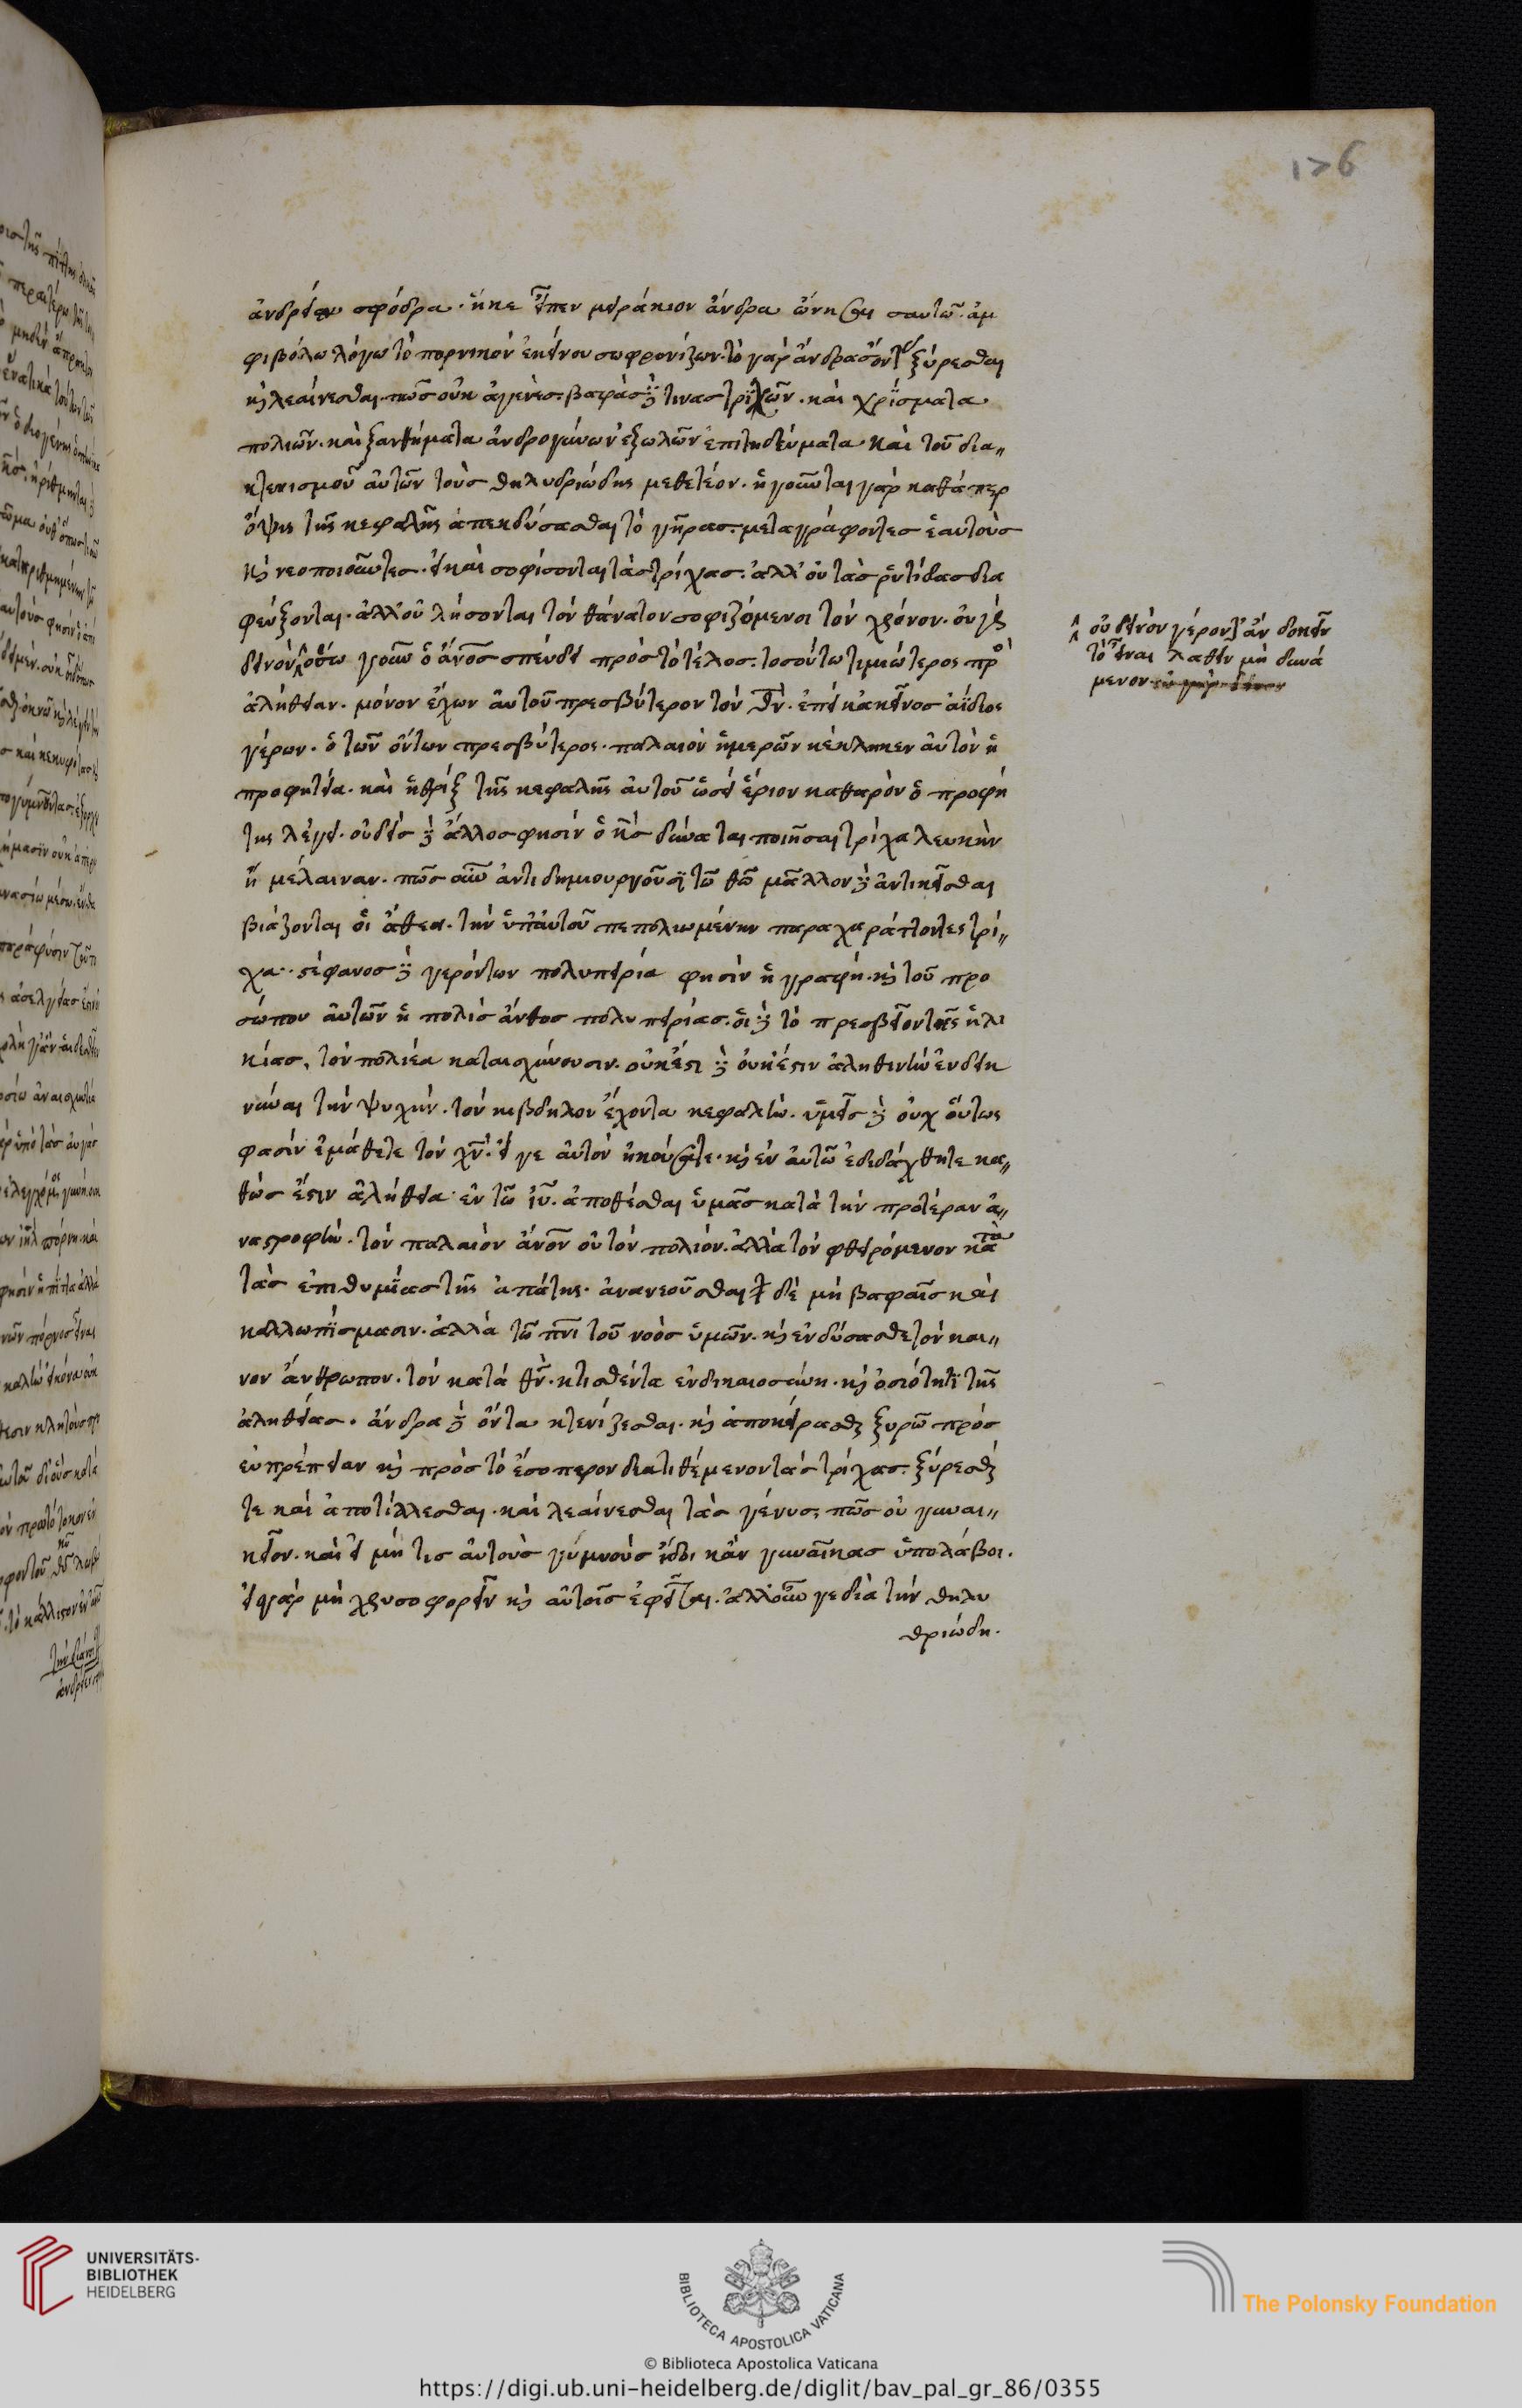 176
ἀνδρείῳ σφόδρα. ἧκε εἶπεν μειράκιον ἄνδρα ὤνησαι σαυτῶ. ἀμ
φιβόλω λόγω τὸ πορνικὸν ἐκείνου σωφρονίζων. τὸ γὰρ ἄνδρας ὄντας ξύρεσθαι
κ λεαίνεσθαι. πῶς οὐκ ἀγενὲς. βαφὰς δέ τινας τριχῶν. καὶ χρίσματα
πολιῶν. καὶ ξανθήματα ἀνδρογύνων ἐξωλῶν ἐπιτηδεύματα καὶ τοῦ δια„
κτενισμοῦ αὐτῶν τοὺς θηλυδριώδης μεθετέον. ἡγοῦνται γὰρ καθάπερ
ὄφις τῆς κεφαλῆς ἀπεκδύσασθαι τὸ γῆρας. μεταγράφοντες ἑαυτοὺς
κ νεοποιοῦντες. εἰ καὶ σοφίσονται τὰς τρίχας. ἀλλ' οὐ τὰς ῥυτίδας δια
φεύξονται. ἀλλ' οὐ λήσονται τὸν θάνατον σοφιζόμενοι τὸν χρόνον. οὐ γὰρ
δεινὸν ὅσω γοῦν ὁ ἄνος σπεύδει πρὸς τὸ τέλος. τοσούτω τιμιώτερος πρὸς
ἀλήθειαν. μόνον ἔχων αὑτοῦ πρεσβύτερον τὸν θν. ἐπεὶ κἀκεῖνος ἀΐδιος
γέρων. ὁ τῶν ὄντων πρεσβύτερος. παλαιὸν ἡμερῶν κέκληκεν αὐτὸν ἡ
προφητεία. καὶ ἡ θρὶξ τῆς κεφαλῆς αὐτοῦ ὡσεὶ ἔριον καθαρὸν ὁ προφή
της λέγει. οὐδεὶς δὲ ἄλλος φησὶν ὁ κς δύναται ποιῆσαι τρίχα λευκὴν
ἢ μέλαιναν. πῶς οὖν ἀντιδημιουργοῦσι τῶ θῶ μᾶλλον δὲ ἀντικεῖσθαι
βιάζονται οἱ ἄθεοι. τὴν ὑπ' αὐτοῦ πεπολιωμένην παραχαράττοντες τρί„
χα. στέφανος δὲ γερόντων πολυπειρία φησὶν ἡ γραφή. κ τοῦ προ
σώπου αὐτῶν ἡ πολιὰς ἄνθος πολυπειρίας. οἱ δὲ τὸ πρεσβεῖον τῆς ἡλι
κίας, τὸν πολιέα καταισχύνουσιν. οὐκ ἔστι δὲ οὐκ ἔστιν ἀληθινὴν ἐνδεικ
νύναι τὴν ψυχήν. τὸν κίβδηλον ἔχοντα κεφαλήν. ὑμεῖς δὲ οὐχ οὕτως
φασὶν ἐμάθετε τὸν χν. εἴ γε αὐτὸν ἠκούσατε. κ ἐν αὐτῶ ἐδιδάχθητε κα„
θώς ἐστιν ἀλήθεια ἐν τῶ ιυ. ἀποθέσθαι ὑμᾶς κατὰ τὴν προτέραν ἀ„
ναστροφήν. τὸν παλαιὸν ἄνον οὐ τὸν πολιόν. ἀλλὰ τὸν φθειρόμενον κατὰ
τὰς ἐπιθυμίας τῆς ἀπάτης. ἀνανεοῦσθαι δὲ μὴ βαφαῖς καὶ
καλλωπίσμασιν. ἀλλὰ τῶ πνι τοῦ νοὸς ὑμῶν. κ ἐνδύσασθε τὸν και„
νον ἄνθρωπον. τὸν κατὰ θν. κτισθέντα ἐν δικαιοσύνη. κ ὁσιότητι τῆς
ἀληθείας. ἄνδρα δὲ ὄντα κτενίζεσθαι. κ ἀποκείρασθαι ξυρῶ πρὸς
εὐπρέπειαν κ πρὸς τὸ ἔσοπτρον διατιθέμενον τὰς τρίχας. ξύρεσθαι
τε καὶ ἀποτίλλεσθαι. καὶ λεαίνεσθαι τὰς γένυς. πῶς οὐ γυναι„
κεῖον. καὶ εἰ μή τις αὐτοὺς γύμνοὺς ἴδοι κἂν γυναῖκας ὑπολάβοι.
εἰ γὰρ μὴ χρυσοφορεῖν κ αὐτοῖς ἐφεῖται. ἀλλ' οὖν γε διὰ τὴν θηλυ
δριώδη.
οὐ δεινὸν γέροντ' ἂν δοκεῖν
τὸ εἶναι λαθεῖν μὴ δυνά
μενον
UNIVERSITÄTS-
BIBLIOTHEK
HEIDELBERG
BIBLIOTECA APOSTOLICA VATICANA
The Polonsky Foundation
© Biblioteca Apostolica Vaticana
https://digi.ub.uni-heidelberg.de/diglit/bav_pal_gr_86/0355